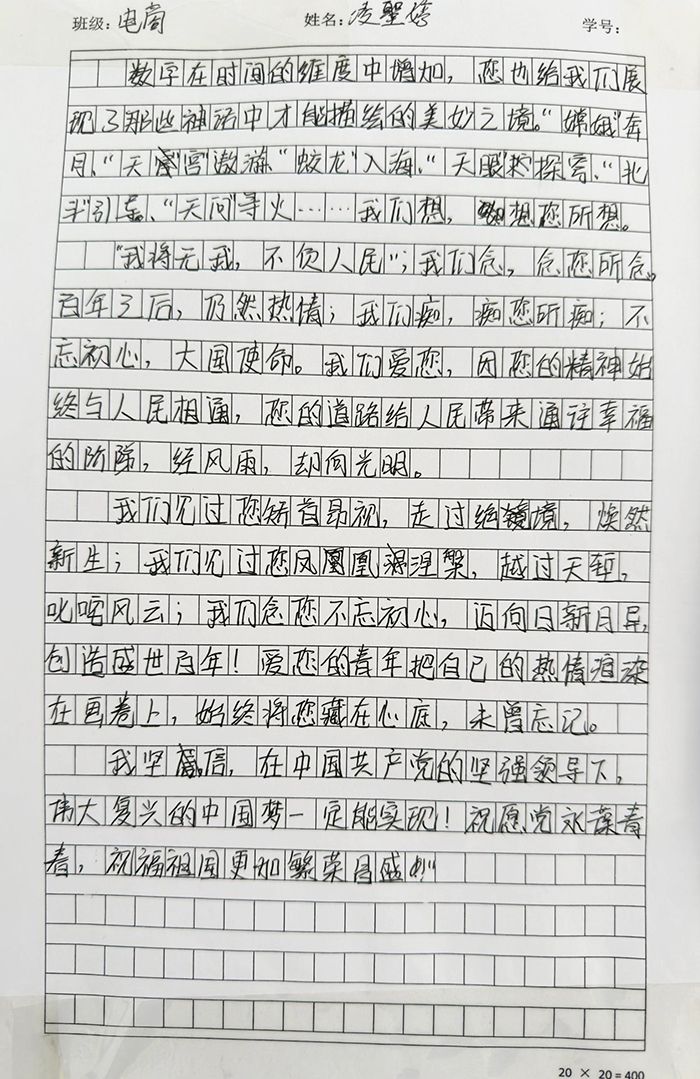 班级：电商 姓名：凌聖婷 学号：
数字在时间的维度中增加，您也给我们展
现了那些神话中才能描绘的美妙之境。“嫦娥”奔
月、“天宫”遨游、“蛟龙”入海、“天眼”探穹、“北
斗”引集、“天问”寻火……我们想，想您所想。
“我将无我，不负人民”；我们念，念您所念。
百年之后，仍然热情；我们痴，痴您所痴；不
忘初心，大国使命。我们爱您，因您的精神始
终与人民相通，您的道路给人民带来通往幸福
的阶际，经风雨，却向光明。
我们见过您矫首昂视，走过绝境，焕然
新生；我们见过您凤凰涅槃，越过天堑，
叱咤风云；我们念您不忘初心，迈向日新月异，
创造盛世百年！爱您的青年把自己的热情渲染
在画卷上，始终将您藏在心底，未曾忘记。
我坚信，在中国共产党的坚强领导下，
伟大复兴的中国梦一定能实现！祝愿党永葆青
春，祝福祖国更加繁荣昌盛！！！
20 × 20 = 400